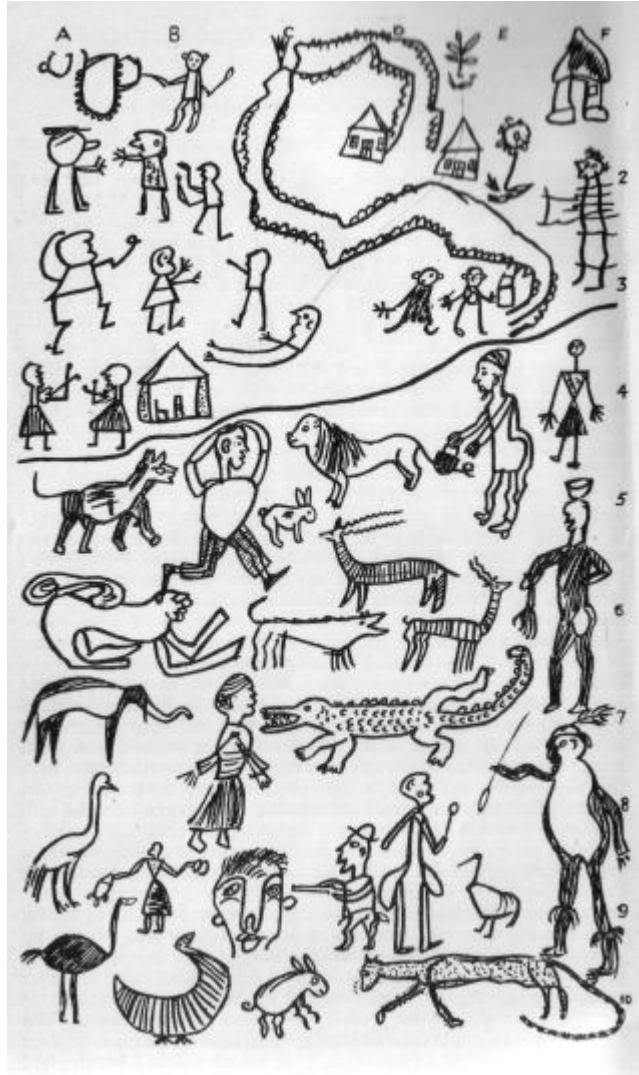 A B C D E F
2
3
4
5
6
7
8
9
10